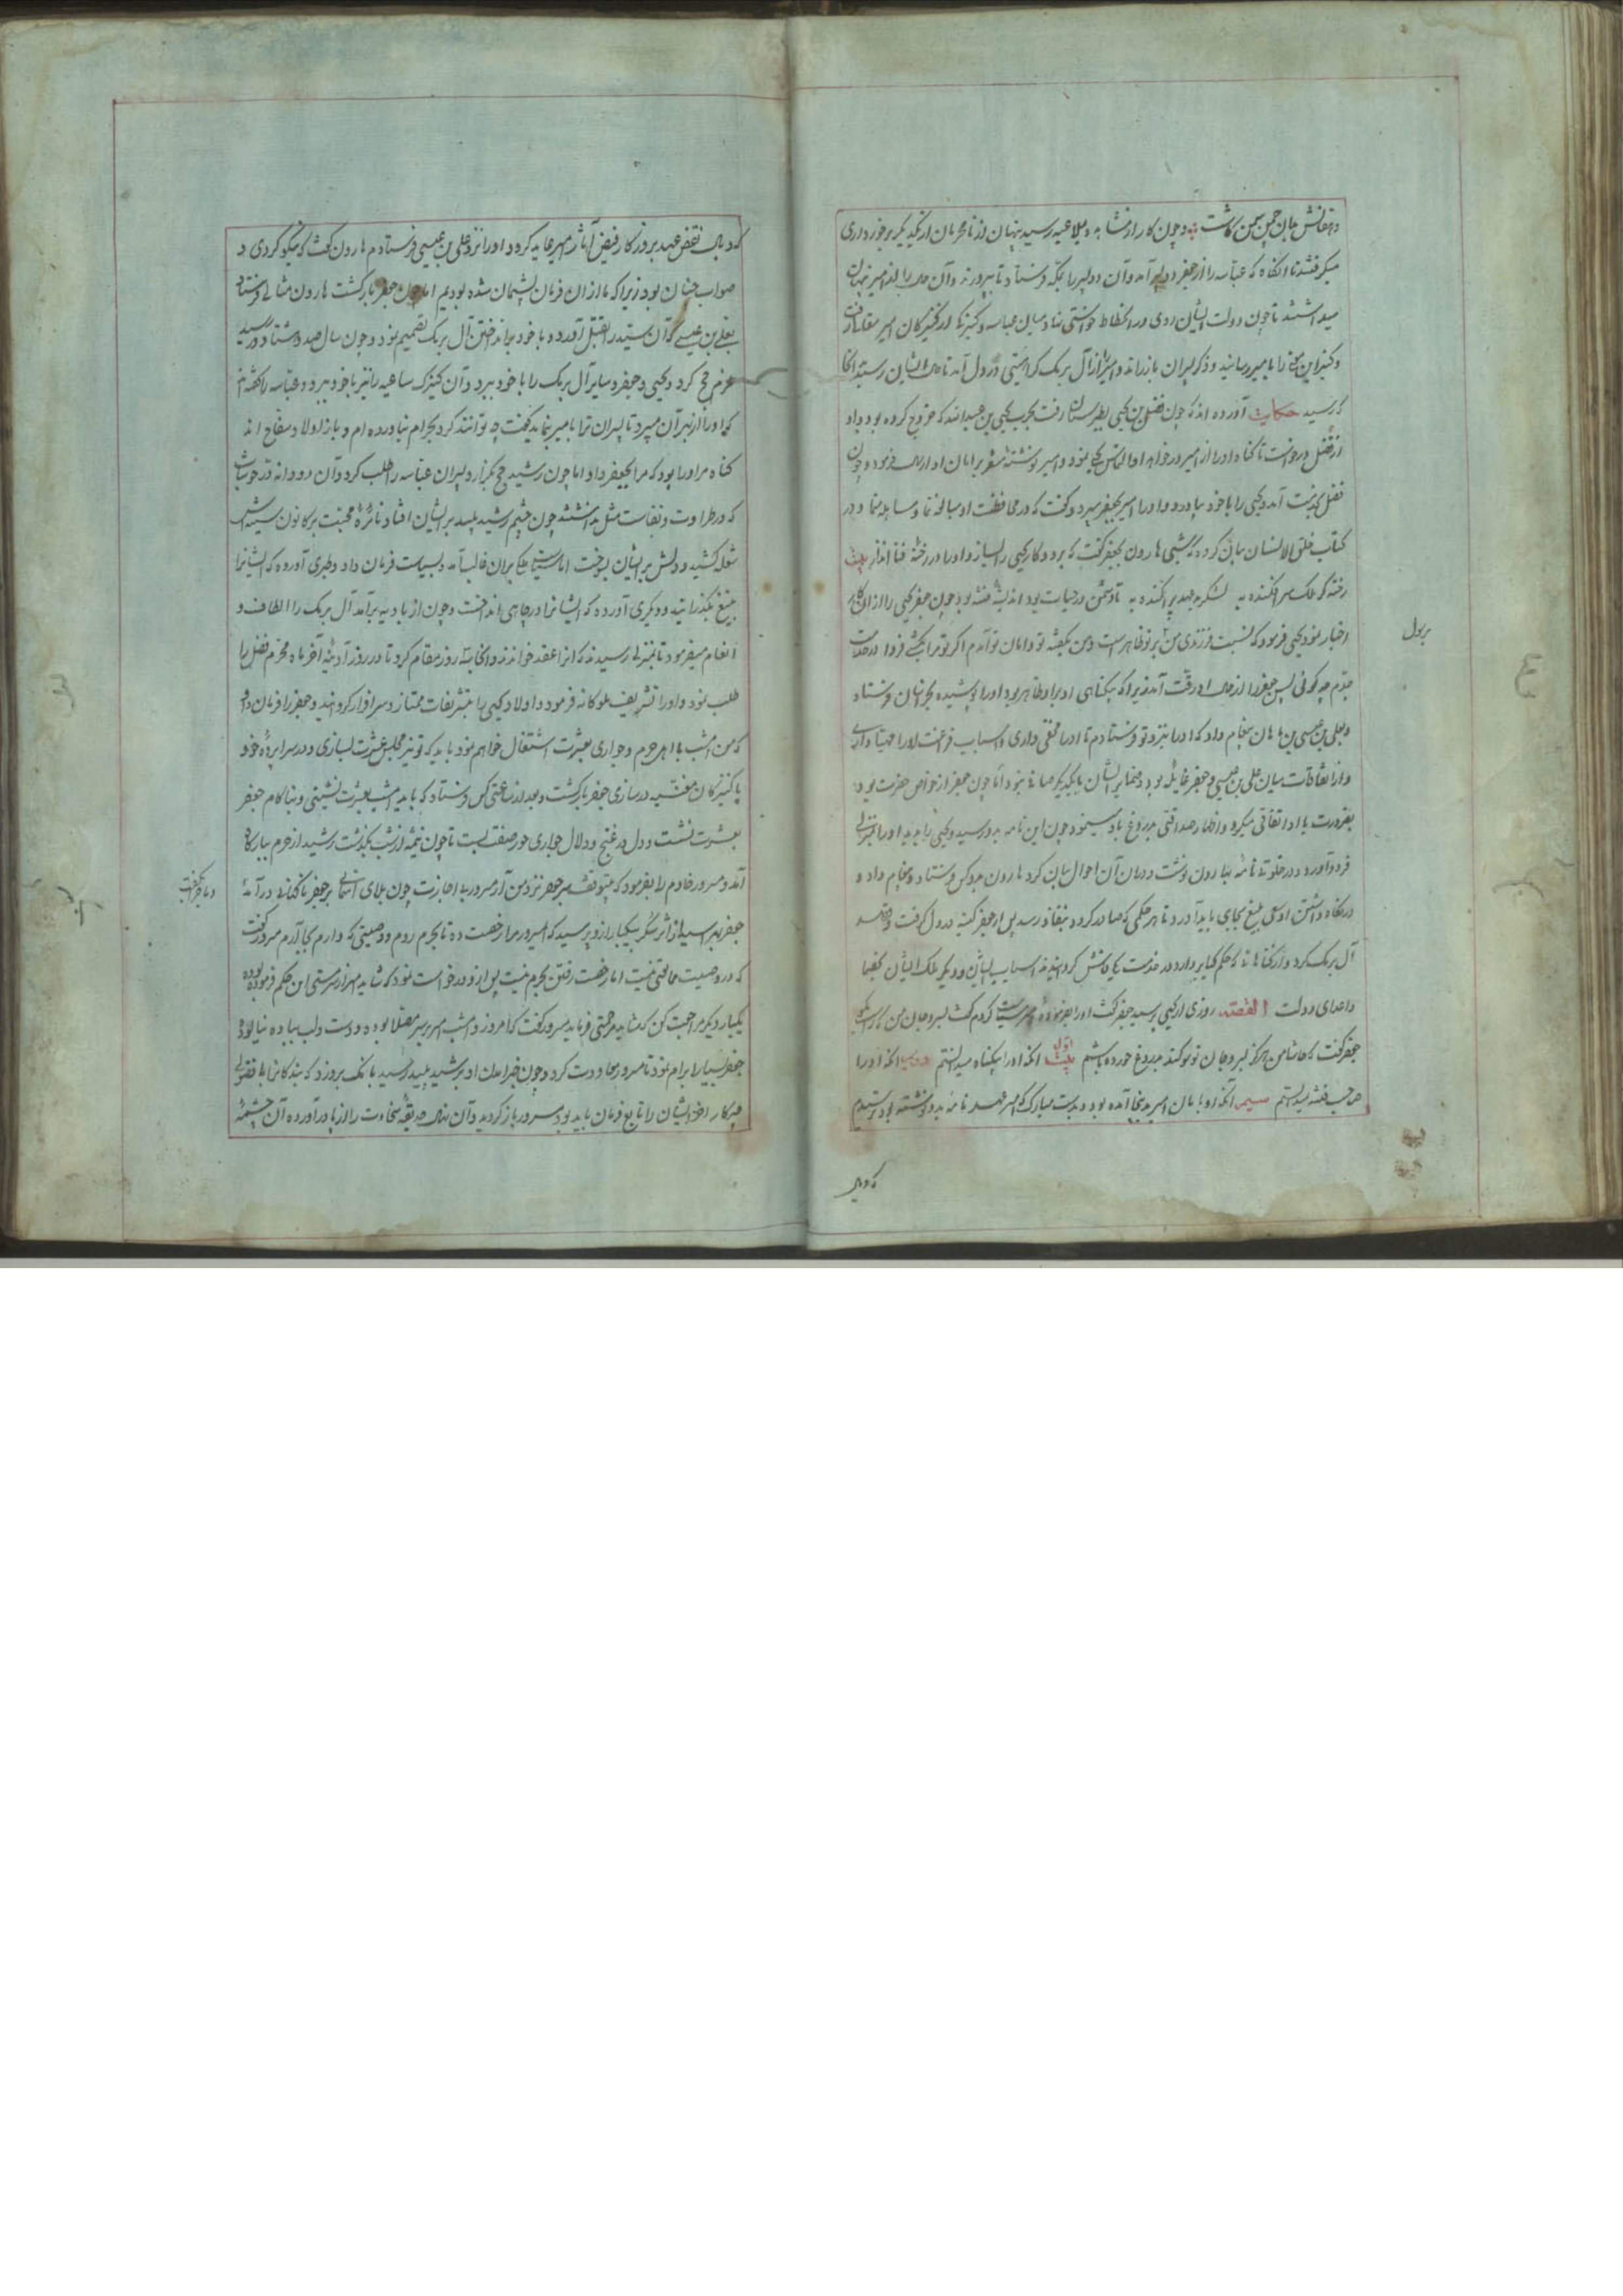 دهقانش جان چمن سمن کاشت وچون کار از مشابه و ملاعبه رسید پنهان از نامحرمان از یکدیگر برخورداری
میکرفتند تا آنکاه که عباسه را از جعفر دو پسر آمد وآن دو پسر را بمکه فرستاد تا بپرورند وآن حال را از امیر پنهان
میداشتند تا چون دولت ایشان روی در انحطاط خواستی نهاد میان عباسه وکنیزکی از کنیزکان امیر مقارفت
وکنیز این سخن را با میر رسانید وذکر پسران باز راند و امیر را از آل برمک کراهیتی در دل آمد تا حال ایشان رسید آنجا
که رسید حکایت آورده اند که چون فضل بن یحیی بطبرستان رفت بحرب یحیی بن عبدالله که خروج کرده بود واو
از فضل درخواست تا کناه او را از امیر درخواهد او التماس یحیی نمود و امیر نوشته مشعر بر امان او ارسال فرمود وچون
فضل بخدمت آمد و یحیی را با خود بیاورد و او را امیر بجعفر سپرد وکفت که در محافظت او مبالغه نما و مساهله منما و در
کتاب خلق الانسان بیان کرده که شبی هارون بجعفر کفت که برو و کار یحیی را بساز و او را در رخنه فنا انداز بیت
رخنه کر ملک سرافکنده به لشکر بدعهد پراکنده به تا دشمن در حیات بود اندیشه فتنه بود چون جعفر یحیی را از آن کار
اخبار نمود یحیی فرمود که نسبت فرزندی من بر تو ظاهر است ومن بکفته تو و امان تو آمدم اکر تو مرا بکشی فردا در خدمت
جدم چه کوئی پس جعفر را از حال او رقت آمد زیرا که بیکناهی او بر او ظاهر بود او را پوشیده بخراسان فرستاد
وبعلی بن عیسی بن ماهان پیغام داد که او را بنزد تو فرستادم تا او را مخفی داری و اسباب فرغت او را مهیا داری
واز اتفاقات میان علی بن عیسی وجعفر غایله بود وضمایر ایشان با یکدیکر صافی نبود واما چون جعفر از خواص حضرت بود
بضرورت با او اتفاقی میکرد واظهار صداقتی بدروغ با او مینمود چون این نامه بدو رسید و یحیی را بدید او را بمنزلی
فرود آورد ودر خلوت نامه بهارون نوشت ودران آن احوال بیان کرد هارون بدو کس فرستاد و پیغام داد و
در نکاه داشتن او سعی بلیغ بجای باید آورد تا هر حکمی که صادر کردد بنفاذ رسد پس از جعفر کینه در دل کرفت وقصد
آل برمک کرد واز کناهان که حکم کبایر دارد در خدمت یکانش کردانیدند اسباب ایشان و دیکر ملک ایشان
واعدای دولت القصه روزی از یحیی پرسید جعفر کفت او را بفرموده امیر سیاست کردم کفت بسر وجان من که راست بکو
جعفر کفت که حاشا من هرکز بسر وجان تو سوکند بدروغ خورده باشم اول آنکه او را بیکناه میدانستم دویم آنکه او را
صاحب فتنه میدانستم سیم آنکه او با مان امیر بدینجا آمده بود وبدست مبارک که امیر عهد نامه بدو نوشته بود ترسیدم
که وبال
بر بول
که وبال نقض عهد بروزکار فیض آثار امیر عاید کردد او را نزد علی بن عیسی فرستادم هارون کفت که نیکو کردی و
صواب چنان بود زیرا که ما از آن فرمان پشیمان شده بودیم اما چون جعفر بازکشت هارون مثالی فرستاد
بعلی بن عیسی که آن سید را بقتل آورد و با خود برانداختن آل برمک تصمیم نمود وچون سال صد وهشتاد و در رسید
عزم حج کرد ویحیی وجعفر وسایر آل برمک را با خود ببرد وآن کنیزک ساعیه را نیز با خود ببرد وعباسه را کفتند
که او را از بهر آن میبرد تا پسران ترا بامیر نماید کفت چه توانند کرد بحرام نیاورده ام و باز اولاد سفاح اند
کناه مر او را بود که مرا بجعفر داد اما چون رشید حج بکزارد پسران عباسه را طلب کرد وآن دو دانه در خوشاب
که در طراوت ونفاست مثل نداشتند چون چشم رشید پلید بر ایشان افتاد نائره محبت بر کانون سینه اش
شعله کشید و دلش بر ایشان بسوخت اما سیاست ملکی بران غالب آمد و بسیاست فرمان داد وطبری آورده که ایشانرا
بتیغ بکذرانید و دیکری آورده که ایشانرا در چاهی انداخت وچون از بادیه برآمد آل برمک را الطاف و
انعام میفرمود تا بمنزلی رسیدند که انرا عقد خوانند و آنجا سه روز مقام کرد تا در روز آدینه آخر ماه محرم فضل را
طلب نمود واو را تشریف ملوکانه فرمود و اولاد یحیی را بتشریفات ممتاز وسرافراز کردانید وجعفر را فرمان داد
که من امشب با اهل حرم وجواری بعشرت اشتغال خواهم نمود باید که تو نیز مجلس عشرت بسازی ودر سراپرده خود
با کنیزکان مغنیه در سازی جعفر بازکشت وبعد از ساعتی کس فرستاد که باید امشب بعشرت نشینی و بناکام جعفر
بعشرت نشست ودل در غنج ودلال جواری حور صفت بست تا چون نیمه از شب بکذشت رشید از حرم ببارکاه
آمد و مسرور خادم را بفرمود که بی توقف سر جعفر نزد من آر مسرور بی اجازت چون بلای آسمانی بر جعفر ناکهانی درآمد
جعفر بترسید از اثر سکر بیکبار از او پرسید که امیر ور مرا رخصت ده تا بحرم روم و وصیتی که دارم بجا آرم مسرور کفت
که در وصیت مخالفتی نیست اما رخصت رفتن بحرم نیست پس از او درخواست نمود که شاید امیر از سر مستی این حکم فرموده بود
یکبار دیکر مراجعت کن که شاید مرحمتی فرماید مسرور کفت که امروز و امشب امیر بر سر مصلا بوده ودست ولب بباده نیالوده
جعفر بسیار ابرام نمود تا مسرور معاودت کرد وچون خبر امان او برشید پلید رسید بانک برو زد که بندکانرا با فضولی
چکار اخر ایشان را تابع فرمان باید بود مسرور بازکردید وآن نهال حدیقه سخاوت را از پا درآورده آن چشمه